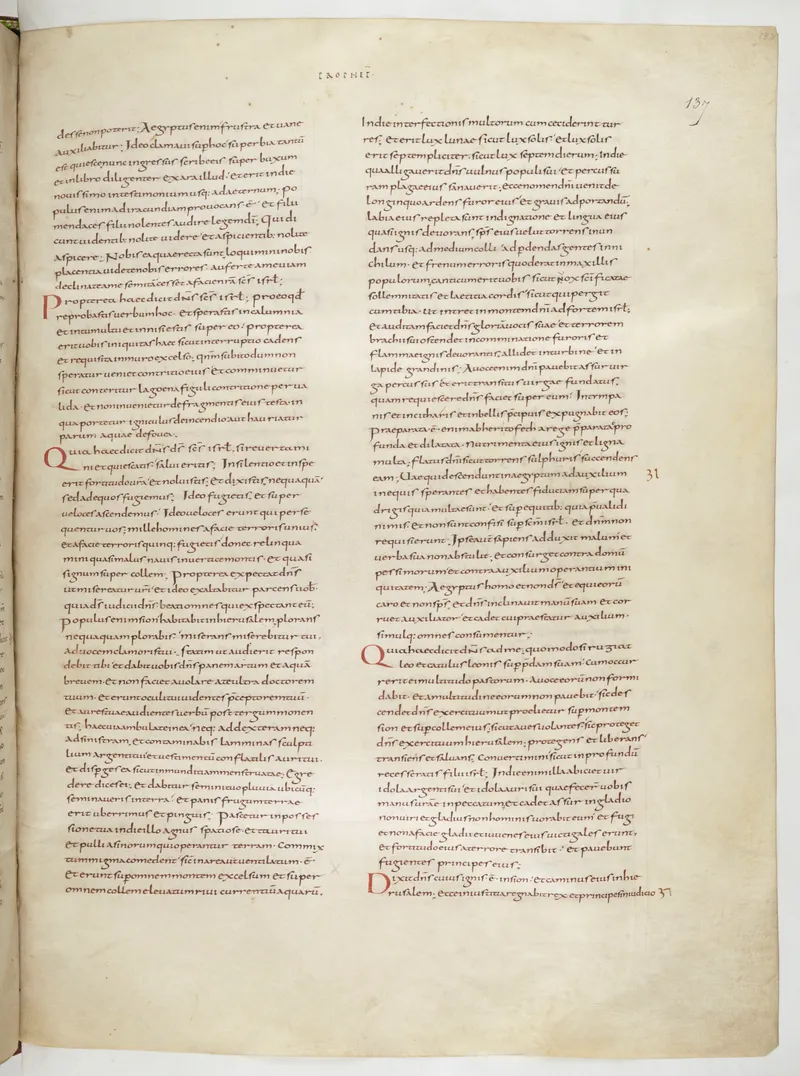 PROPHET
137
desse non poterit; Aegyptus enim frustra et uane
auxiliabitur; Ideo clamaui sup hoc superbia tantū
est quiesce; Nunc ingressus scribe eis super buxum
et in libro diligenter exara illud; et erit in die
nouissimo in testimonium usq; ad aeternum; po
pulus enim ad iracundiam prouocans ē· et filii
mendaces filii nolentes audire legem dī; Qui di
cunt uidentib; nolite uidere· et aspicientib; nolite
aspicere; Nobis ea quae recta sunt loquimini nobis
placentia uidete nobis errores· Auferte a me uiam
declinate a me semitā cesset a facie nr̄a sc̄s isrt̄;
Propterea haec dicit dn̄s sc̄s isrt̄; pro eo qd̄
reprobastis uerbum hoc· et sperastis in calumnia
et in tumultu et innisi estis super eo· propterea
erit uobis iniquitas haec sicut interruptio cadens
et requisita in muro excelso; qnm̄ subito dum non
speratur ueniet contritio eius et comminuetur
sicut conteritur lagoena figuli contritione perua
lida· et non inuenietur de fragmentis eius testa in
qua portetur igniculus de incendio aut hauriatur
parum aquae de fouea·
Quia haec dicit dn̄s ds̄ sc̄s isrt̄, si reuertami
ni et quiescatis· salui eritis; In silentio et in spe
erit fortitudo ur̄a et noluistis; et dixistis nequaquā
sed ad equos fugiemus; Ideo fugietis; et super
ueloces ascendemus; Ideo ueloces erunt qui perse
quentur uos; mille homines a facie terroris unius;
et a facie terroris quinq; fugietis donec relinqua
mini quasi malus nauis in uertice montis· et quasi
signum super collem; Propterea expectat dn̄s
ut misereatur ur̄i· et ideo exaltabitur parcens uob·
quia ds̄ iudicii dn̄s beati omnes qui expectant eū;
Populus enim sion habitabit in hierusalem, plorans
nequaquam plorabis· miserans miserebitur tui·
Ad uocem clamoris tui· statim ut audierit respon
debit tibi et dabit uobis dn̄s panem artum et aquā
breuem· et non faciet auolare a te ultra doctorem
tuum· et erunt oculi tui uidentes p̄ceptorem tuū·
et aures tuae audientes uerbū post tergum monen
tis; haec uia ambulate in ea· neq; ad dexteram neq;
ad sinistram, et contaminabis lamminas sculpti
lium argenti tui et uestimentū conflatilis auri tui·
et disperges ea sicut inmunditia menstruatae; egre
dere dices ei; et dabitur semini tuo pluuia ubicūq;
seminaueris in terra· et panis frugum terrae
erit uberrimus et pinguis; Pascetur in posses
sione tua in die illo agnus spatiose et tauri tui
et pulli asinorum qui operantur terram· Commix
tum migma comedent sic in area ut uentilatum· ē·
et erunt sup omnem montem excelsum et super
omnem collem eleuatum riui currentiū aquarū·
In die interfectionis multorum cum ceciderint tur
res; et erit lux lunae sicut lux solis· et lux solis
erit septempliciter· sicut lux septem dierum; In die
qua alligauerit dn̄s uulnus populi sui· et percussu
ram plagae eius sanauerit; ecce nomen dn̄i uenit de
longinquo ardens furor eius et grauis ad portandū,
labia eius repleta sunt indignatione et lingua eius
quasi ignis deuorans, sp̄s eius uelut torrens inun
dans usq; ad medium colli· ad pdendas gentes in ni
chilum· et frenum erroris quod erat in maxillis
populorum, canticum erit uobis sicut nox sc̄ificatae
sollemnitatis et laetitia cordis sicut qui pergit
cum tibia· ut intret in montem dn̄i ad fortem isrt̄;
et auditam faciet dn̄s gloriā uocis suae et terrorem
brachii sui ostendet in comminatione furoris et
flamma ignis deuorantis, allidet in turbine· et in
lapide grandinis; A uoce enim dn̄i pauebit assur uir
ga percussus & erit transitus uirgae fundatus;
quam requiescere dn̄s faciet super eum· In timpa
nis et in citharis et in bellis p̄cipuis expugnabit eos;
Praeparata· ē· enim ab heri tofeth a rege p̄parata pro
funda et dilatata· Nutrimenta eius ignis et ligna
multa; flatus dn̄i sicut torrens sulphuris succendens
eam; Uae qui descendunt in aegyptum ad auxilium 31
in equis sperantes et habentes fiduciam super qua
drigis quia multae sunt· et sup equitib; quia p̄ualidi
nimis· et non sunt confisi sup sc̄m isrt̄· et dn̄m non
requisierunt; Ipse aut̄ sapiens adduxit malum et
uerba sua non abstulit· et consurget contra domū
pessimorum et contra auxilium operantium ini
quitatem; Aegyptus homo et non ds̄· et equi eorū
caro et non sp̄s· et dn̄s inclinauit manū suam et cor
ruet auxiliator et cadet cui praestatur auxilium·
simulq; omnes consumentur;
Quia haec dicit dn̄s ad me; quomodo si rugiat
leo et catulus leonis sup p̄dam suam· cum occur
rerit ei multitudo pastorum· A uoce eorū non formi
dabit· et a multitudine eorum non pauebit· sic des
cendet dn̄s exercituum ut proelietur sup montem
sion et sup collem eius, sicut aues uolantes· sic proteget
dn̄s exercituum hierusalem; protegens et liberans·
transiens et saluans; Conuertimini sicut in profundū
recesseratis filii isrt̄; In die enim illa abiciet uir
idola argenti sui· et idola auri sui quae fecert̄ uobis
manus urae in peccatum, et cadet assur in gladio
non uiri et gladius non hominis uorabit eum· et fugi
et non a facie gladii et iuuenes eius uectigales erunt,
et fortitudo eius a terrore transibit· et pauebunt
fugientes principes eius;
Dixit dn̄s cuius ignis ē· in sion· et caminus eius in hie
rusalem; ecce in iustitia regnabit rex et principes in iudicio 32